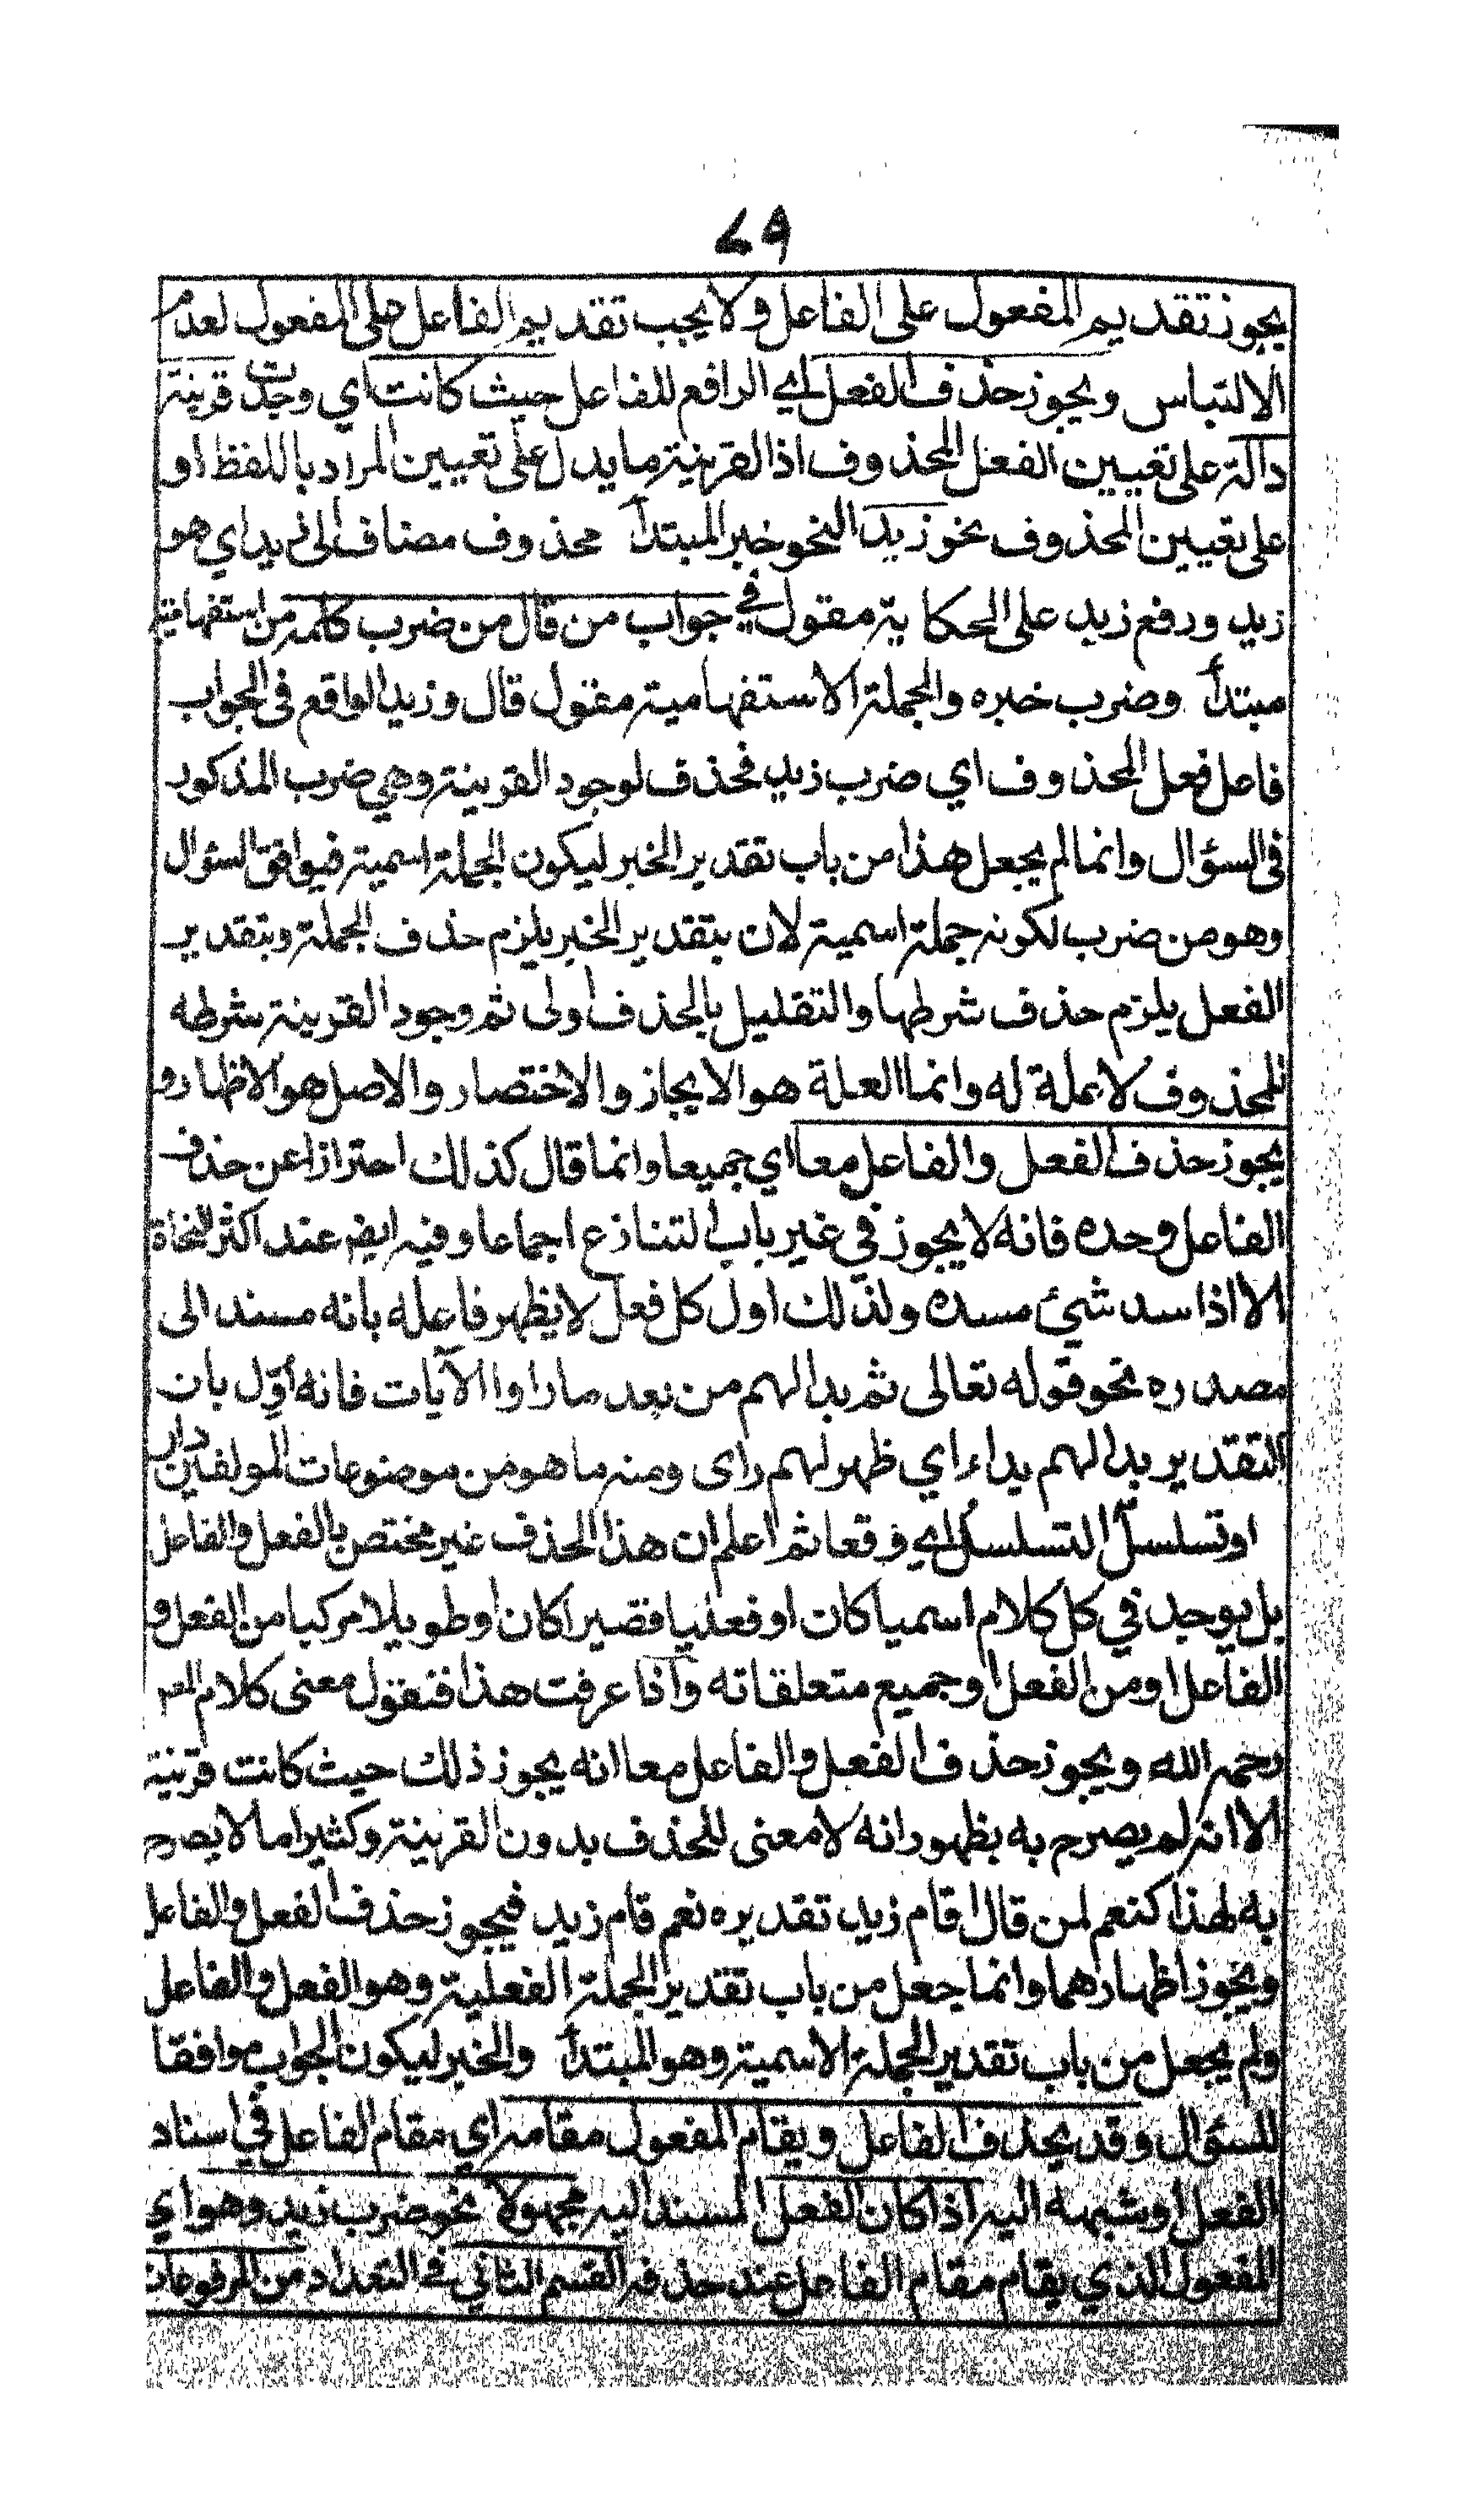 ٤٩
يجوز تقديم المفعول على الفاعل ولا يجب تقديم الفاعل على المفعول لعدم
الالتباس ويجوز حذف الفعل اي الرافع للفاعل حيث كانت اي وجدت قرينة
دالة على تعيين الفعل المحذوف اذ القرينة ما يدل على تعيين المراد باللفظ او
على تعيين المحذوف نحو زيد النحو خبر المبتدأ محذوف مضاف الى زيد اي هو
زيد ورفع زيد على الحكاية مقول في جواب من قال من ضرب كلمة من استفهامية
مبتدأ وضرب خبره والجملة الاستفهامية مقول قال وزيد الواقع في الجواب
فاعل فعل المحذوف اي ضرب زيد فحذف لوجود القرينة وهي ضرب المذكور
في السؤال وانما لم يجعل هذا من باب تقدير الخبر ليكون الجملة اسمية فيوافق السؤال
وهو من ضرب لكونه جملة اسمية لان بتقدير الخبر يلزم حذف الجملة وبتقدير
الفعل يلزم حذف شرطها والتقليل بالحذف اولى ثم وجود القرينة شرطه
للمحذوف لا علة له وانما العلة هو الايجاز والاختصار والاصل هو الاظهار و
يجوز حذف الفعل والفاعل معا اي جميعا وانما قال كذلك احترازا عن حذف
الفاعل وحده فانه لا يجوز في غير باب التنازع اجماعا وفيه ايضم عند اكثر النحاة
الا اذا سد شيئ مسده ولذلك اول كل فعل لا يظهر فاعله بانه مسند الى
مصدره نحو قوله تعالى ثم بدا لهم من بعد ما راوا الآيات فانه اوّل بان
التقدير بدا لهم بداء اي ظهر لهم راى ومنه ما هو من موضوعات المولفين دار
او تسلسل التسلسل اي وقعا ثم اعلم ان هذا الحذف غير مختص بالفعل والفاعل
بل يوجد في كل كلام اسميا كان او فعليا قصيرا كان او طويلا مركبا من الفعل و
الفاعل او من الفعل او جميع متعلقاته واذا عرفت هذا فنقول معنى كلام المص
رحمه الله ويجوز حذف الفعل والفاعل معا انه يجوز ذلك حيث كانت قرينة
الا انه لم يصرح به بظهور انه لا معنى للحذف بدون القرينة وكثيرا ما لا يصرح
به لهذا كنعم لمن قال اقام زيد تقديره نعم قام زيد فيجوز حذف الفعل والفاعل
ويجوز اظهارهما وانما جعل من باب تقدير الجملة الفعلية وهو الفعل والفاعل
ولم يجعل من باب تقدير الجملة الاسمية وهو المبتدأ والخبر ليكون الجواب موافقا
للسؤال وقد يحذف الفاعل ويقام المفعول مقامه اي مقام الفاعل في اسناد
الفعل او شبهه اليه اذا كان الفعل المسند اليه مجهولا نحو ضرب زيد وهو اي
المفعول الذي يقام مقام الفاعل عند حذفه القسم الثاني في التعداد من المرفوعات